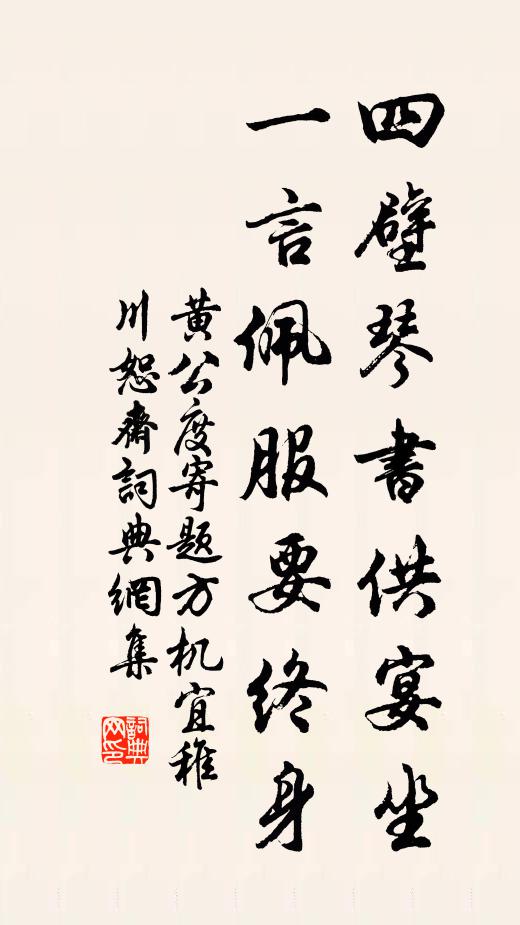 四壁琴書供宴坐
一言佩服要終身
黃公度寄題方机宜稚
川恕齋詞典網集
詞典网印